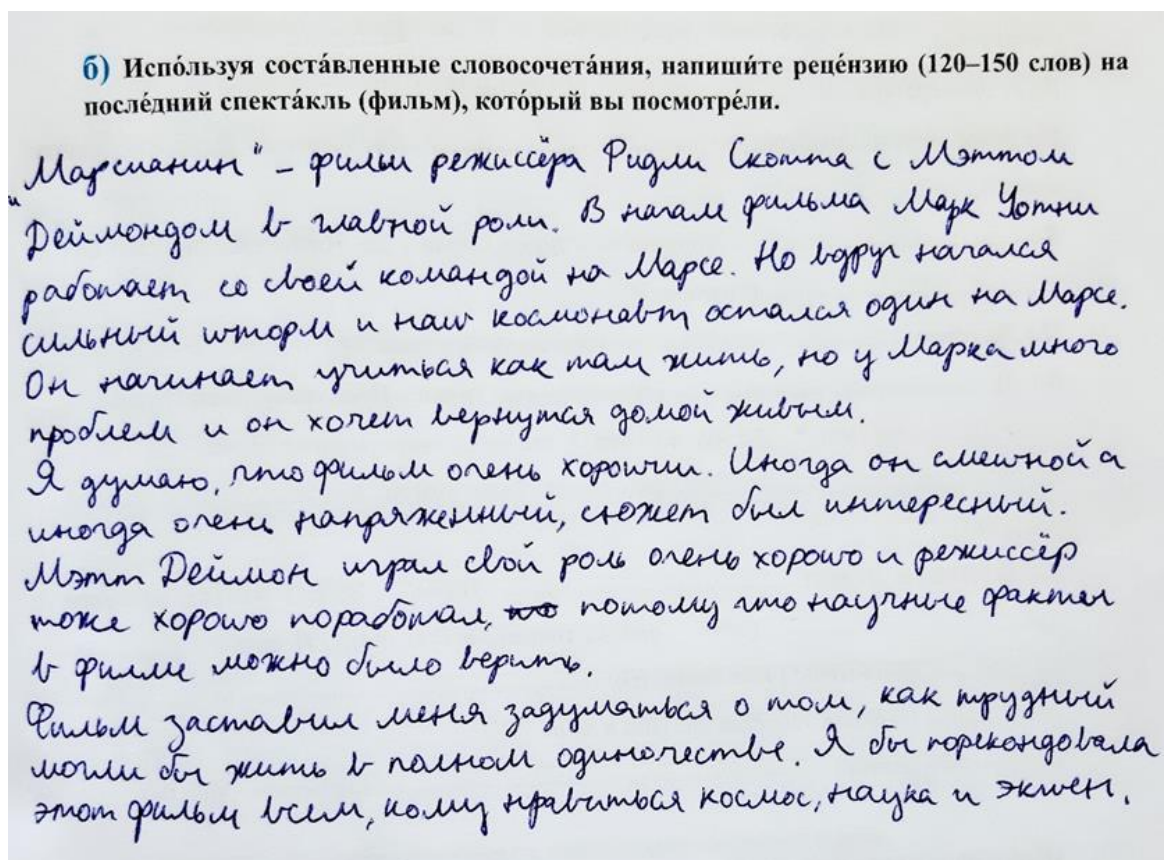 б) Испо́льзуя соста́вленные словосочета́ния, напиши́те реце́нзию (120–150 слов) на
после́дний спекта́кль (фильм), кото́рый вы посмотре́ли.
„Марсианин" – фильм режиссёра Ридли Скотта с Мэттом
Деймондом в главной роли. В начале фильма Марк Уотни
работает со своей командой на Марсе. Но вдруг начался
сильный шторм и наш космонавт остался один на Марсе.
Он начинает учиться как там жить, но у Марка много
проблем и он хочет вернутся домой живым.
Я думаю, что фильм очень хороший. Иногда он смешной а
иногда очень напряженный, сюжет был интересный.
Мэтт Деймон играл свой роль очень хорошо и режиссёр
тоже хорошо поработал, потому что научные факты
в филме можно было верить.
Фильм заставил меня задуматься о том, как трудный
могли бы жить в полном одиночестве. Я бы порекондовала
этот фильм всем, кому нравиться космос, наука и экшен.